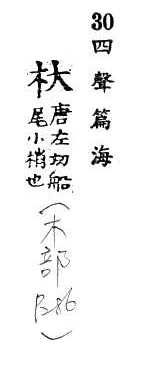 30四聲篇海
杕
唐左切船
尾小梢也
(木部